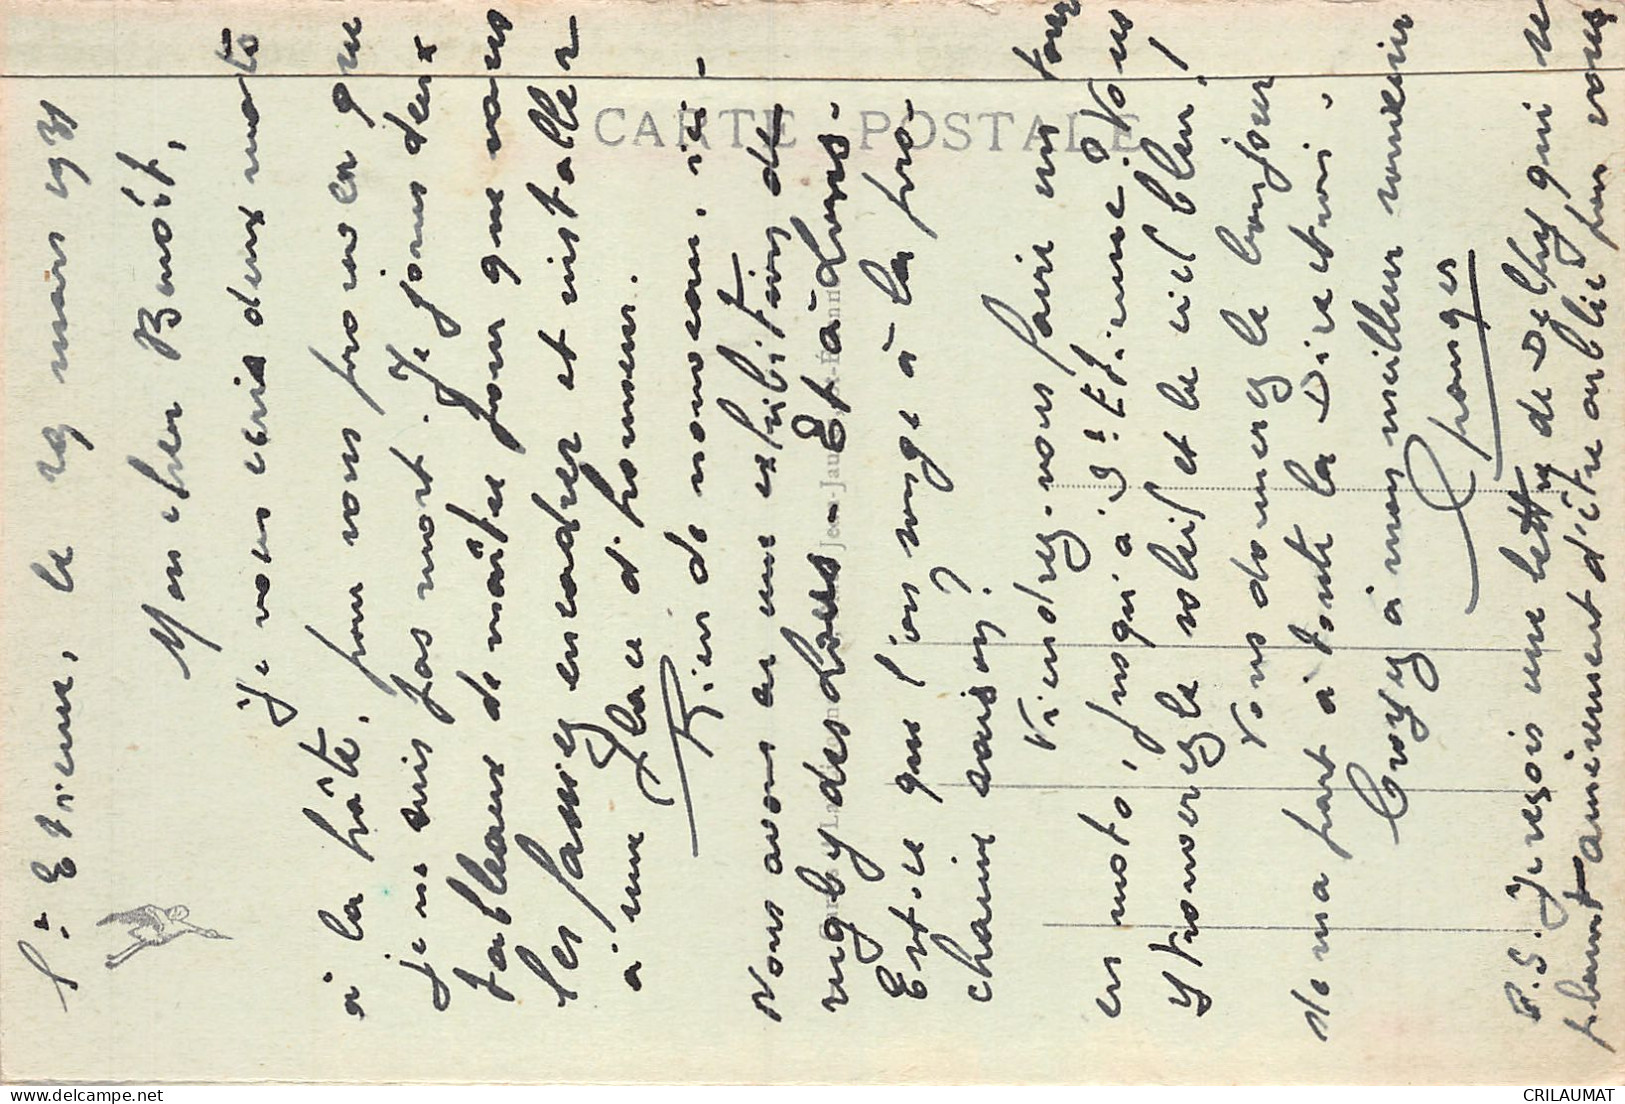 St Etienne, le 29 mars 1931
Mon cher Benoît,
Je vous écris deux mots
à la hâte, pour vous prouver que
je ne suis pas mort. Je joins deux
tableaux de maître pour que vous
les fassiez encadrer et installer
à une place d'honneur.
Rien de nouveau, ici.
Nous avons eu une exhibition de
rugby des Lous - Et à Lons.
Est-ce que l'on songe à la pro-
chaine saison?
Viendrez-vous faire un tour
en moto, jusqu'à St Etienne? Vous
y trouverez le soleil et le ciel bleu!
Vous donnerez le bonjour
de ma part à toute la Direction.
Croyez à mon meilleur souvenir
P.S. Je reçois une lettre de Delhy qui se
plaint amèrement d'être oublié par vous
CARTE POSTALE
CRILAUMAT